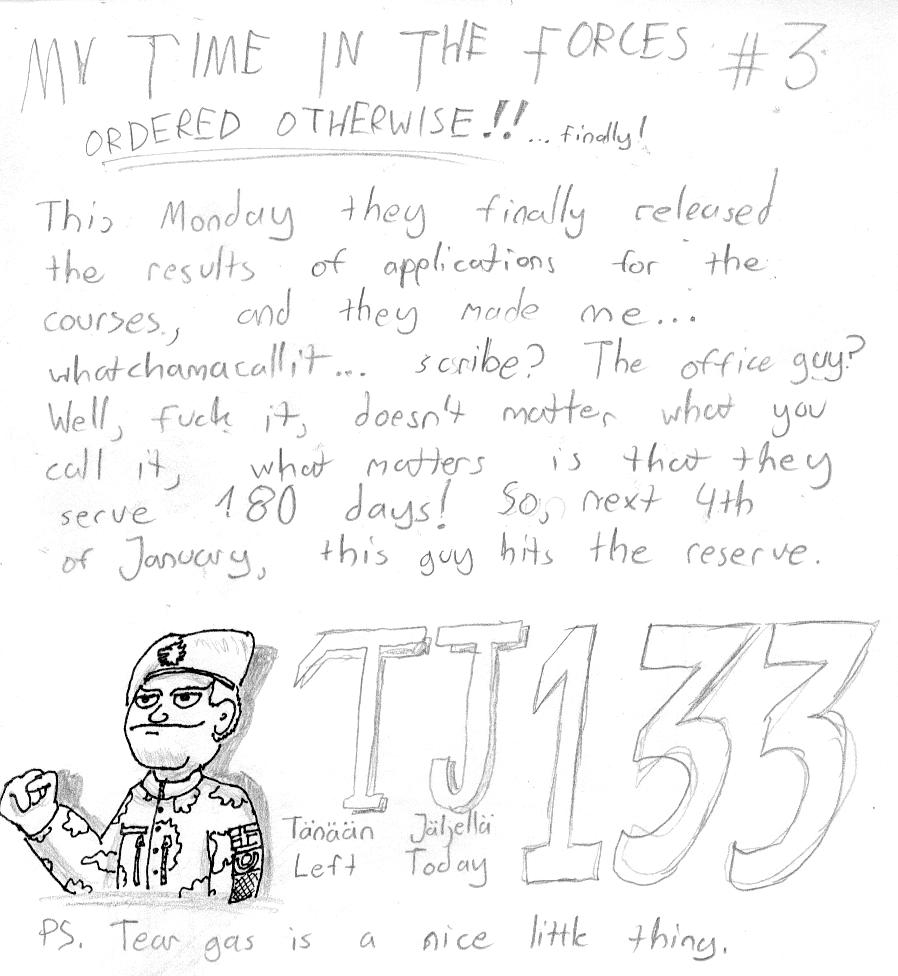 MY TIME IN THE FORCES #3
ORDERED OTHERWISE!! ...finally!
This Monday they finally released
the results of applications for the
courses, and they made me...
whatchamacallit... scribe? The office guy?
Well, fuck it, doesn't matter what you
call it, what matters is that they
serve 180 days! So, next 4th
of January, this guy hits the reserve.
TJ133
Tänään Jäljellä
Left Today
PS. Tear gas is a nice little thing.